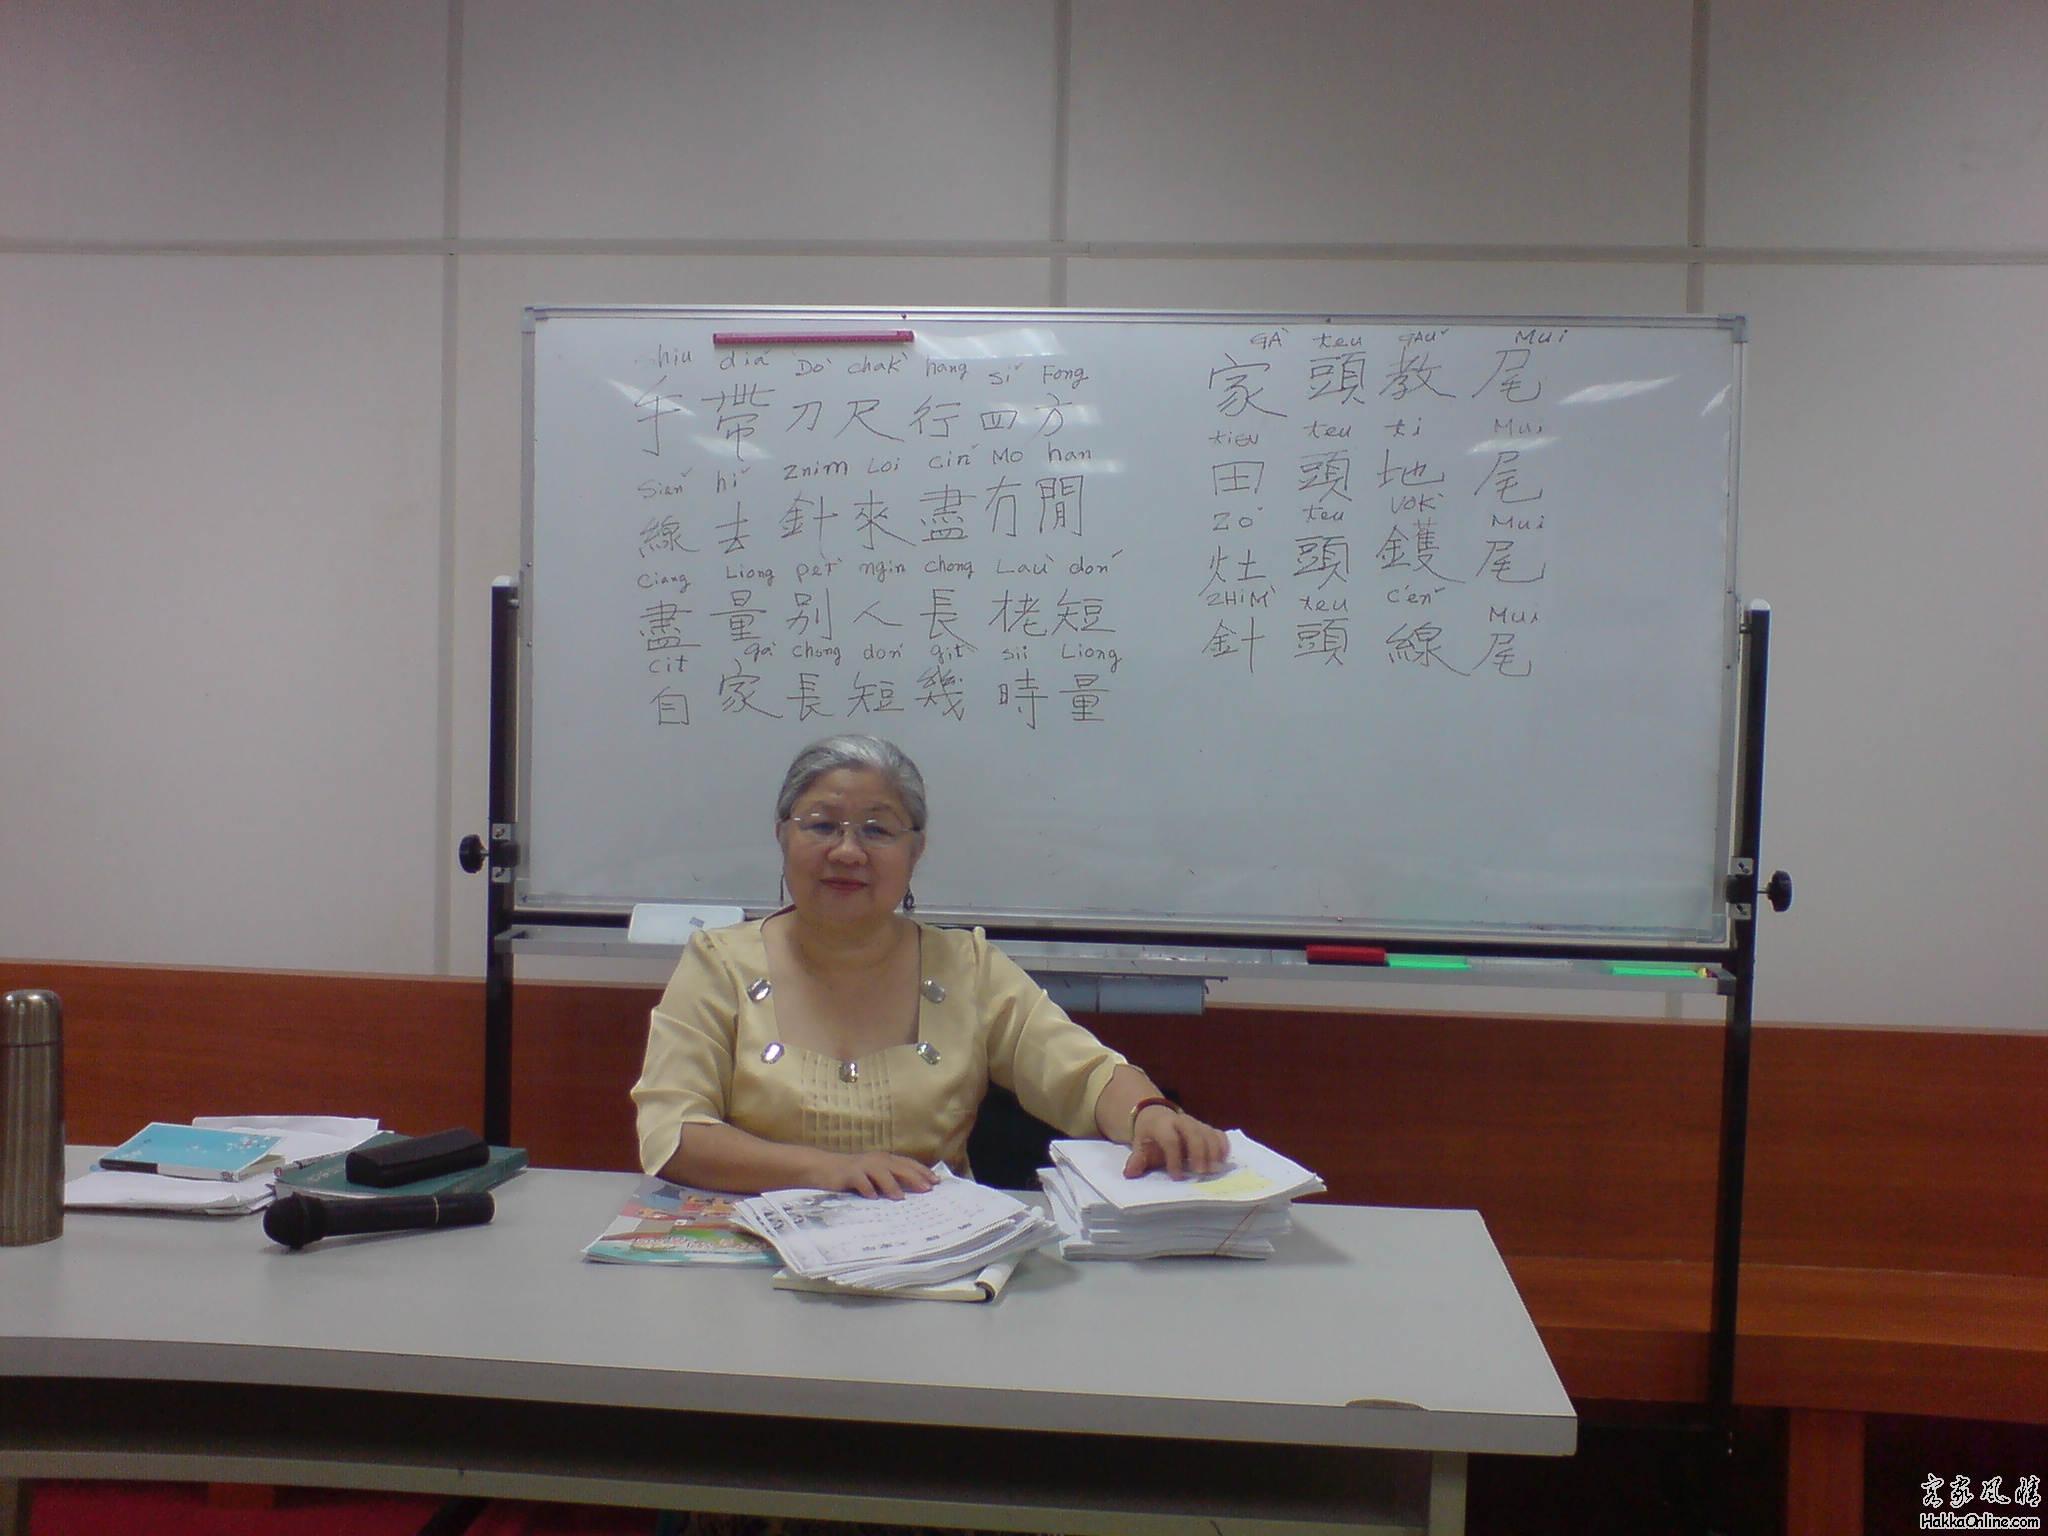 shiu diǎ Dò chak' hang sǐ Fong
手帶刀尺行四方
Siǎn hǐ zhim Loi cin̆ Mo han
線去針來盡冇閒
Ciang Liong pet' ngin chong Lau don
盡量別人長栳短
Cit gà chong don git sii Liong
自家長短幾時量
GÀ teu GAŬ Mui
家頭教尾
tien teu ti Mui
田頭地尾
zo teu VOK Mui
灶頭鑊尾
ZHIM teu Cen Mui
針頭線尾
客家風情
HakkaOnline.com